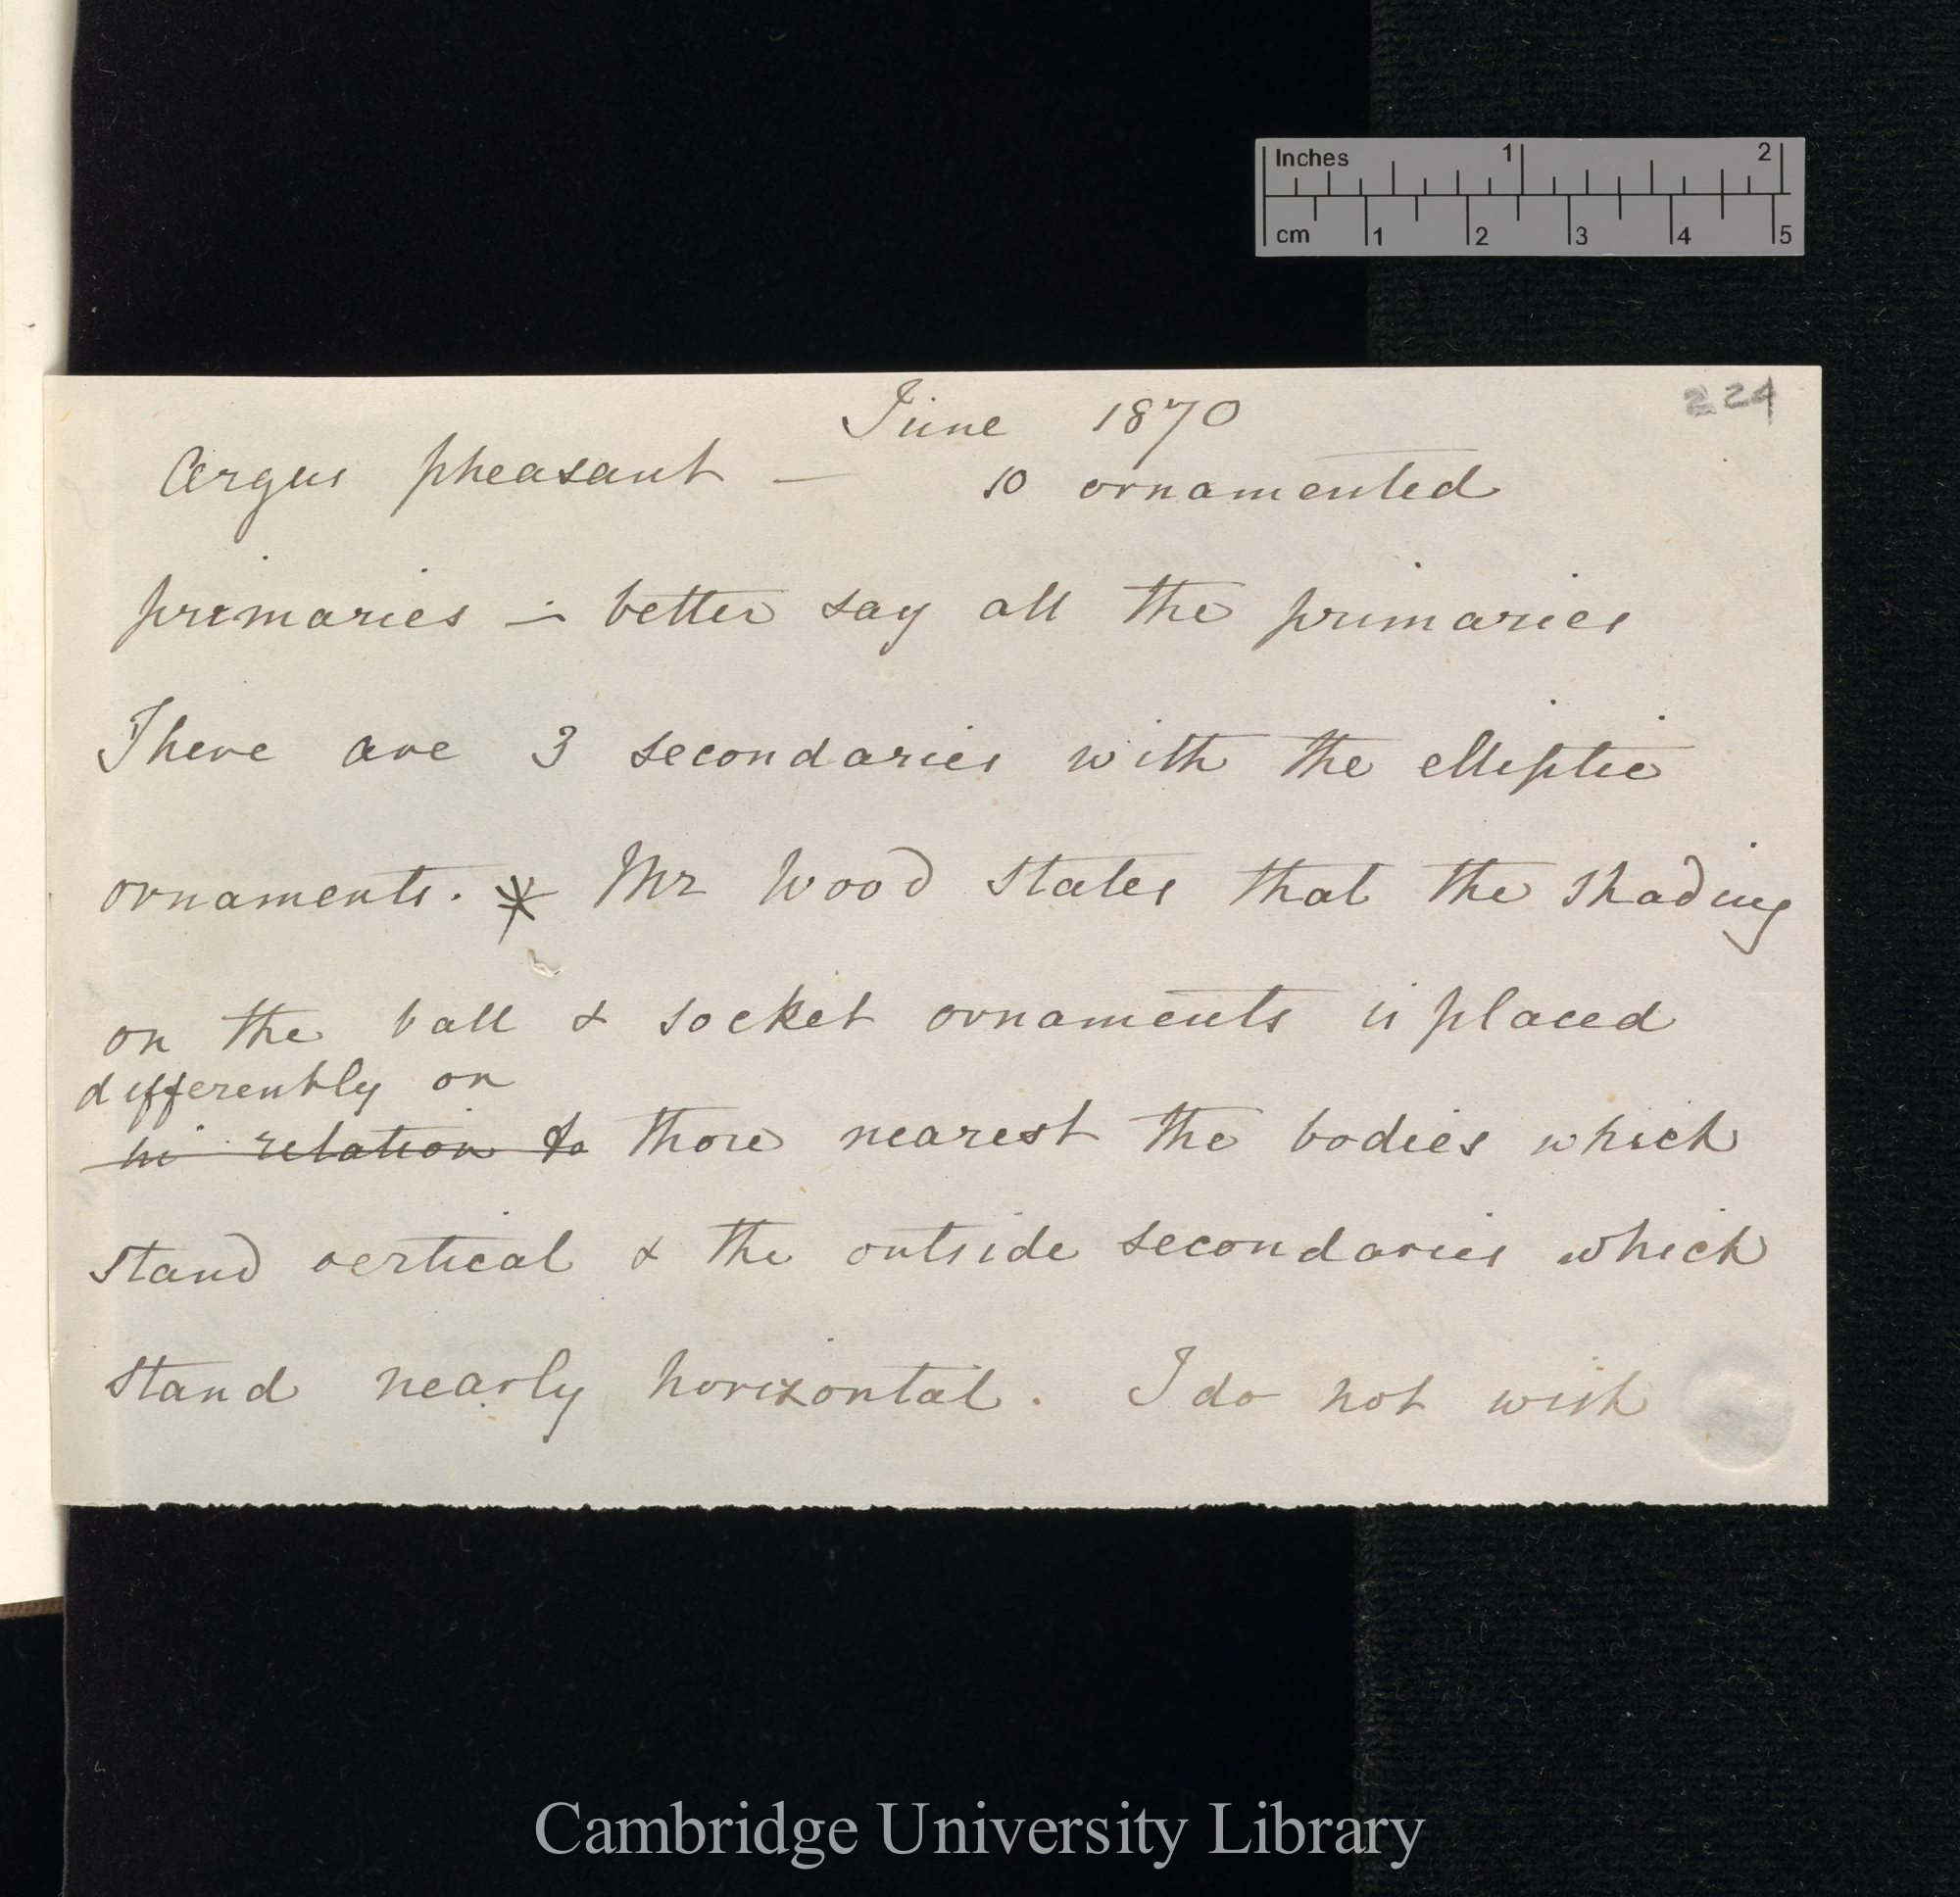 Inches 1 2
cm 1 2 3 4 5
224
June 1870
Argus pheasant — 10 ornamented
primaries — better say all the primaries
There are 3 secondaries with the elliptic
ornaments. * Mr Wood states that the shading
on the ball & socket ornaments is placed
differently on
in relation to those nearest the bodies which
stand vertical & the outside secondaries which
stand nearly horizontal. I do not wish
Cambridge University Library